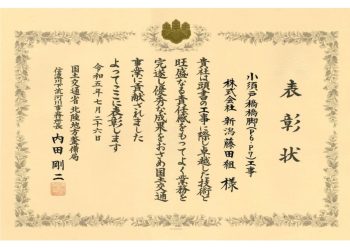 表彰状
小須戸橋橋脚(P6・P7)工事
株式会社 新潟藤田組 様
貴社は頭書の工事に際し卓越した技術と
旺盛なる責任感をもってよく業務を
完遂し優秀な成果をおさめ国土交通
事業に貢献されました
よってここに表彰します
令和五年七月二十六日
国土交通省 北陸地方整備局
信濃川下流河川事務所長 内田剛二